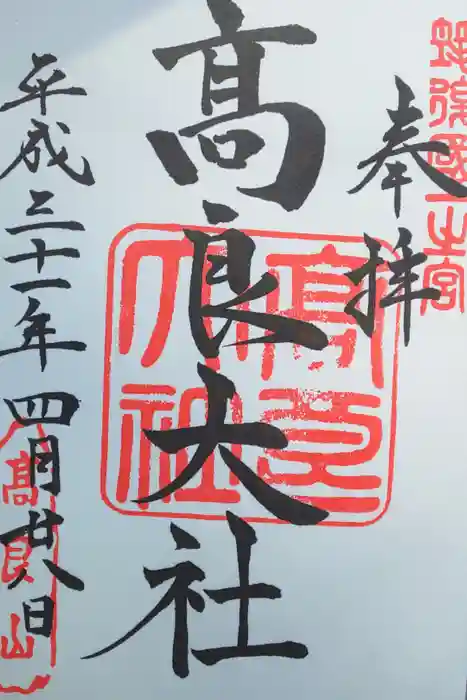 筑後國一之宮
奉拝
髙良大社
高良大社
平成三十一年四月廿八日
高良山